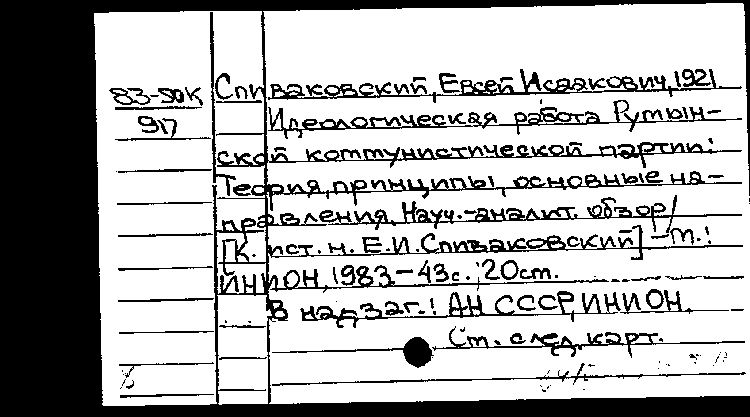 83-50К
917
Спиваковский, Евсей Исаакович, 1921
Идеологическая работа Румын-
ской коммунистической партии:
Теория, принципы, основные на-
правления. Науч.-аналит. обзор/
[К. ист. н. Е.И. Спиваковский] – М.:
ИНИОН, 1983 – 43с.; 20см.
В надзаг.: АН СССР, ИНИОН.
См. след. карт.